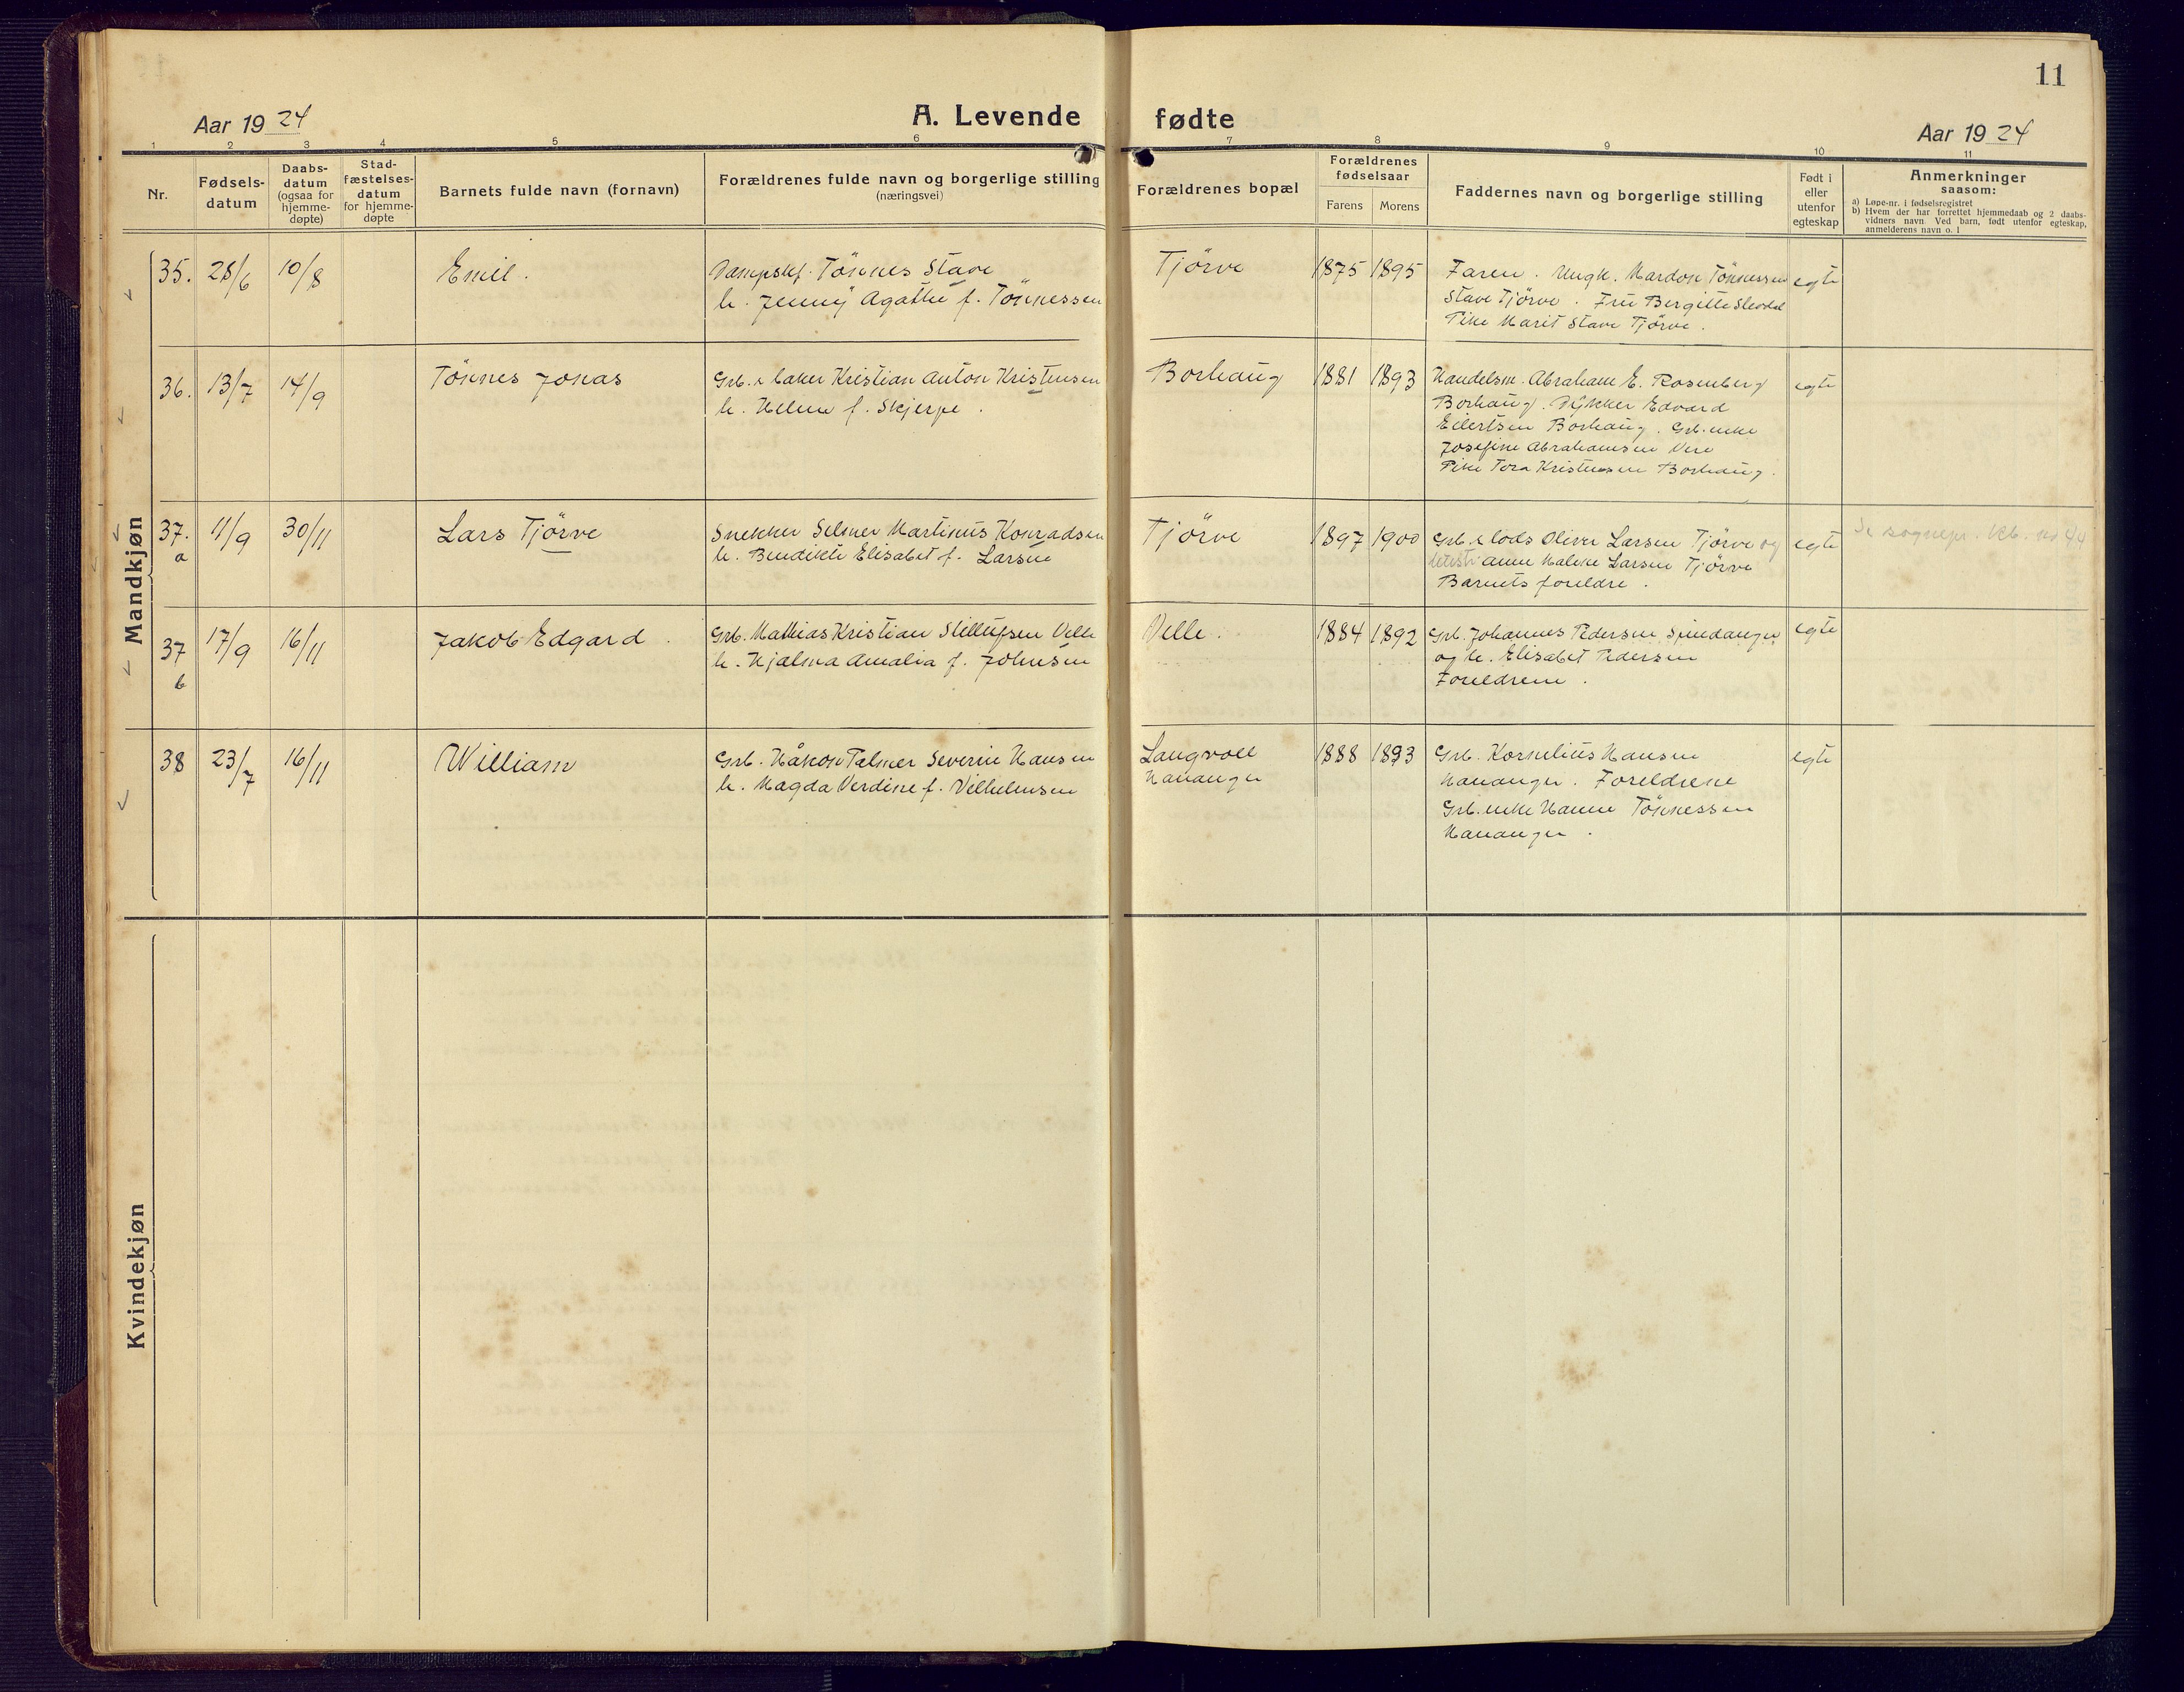 11
Aar 1924
A. Levende fødte
Aar 1924
1 2 3 4 5 6 7 8 9 10 11
Nr.
Fødsels-
datum
Daabs-
datum
(ogsaa for
hjemme-
døpte)
Stad-
fæstelses-
datum
for hjemme-
døpte
Barnets fulde navn (fornavn)
Forældrenes fulde navn og borgerlige stilling
(næringsvei)
Forældrenes bopæl
Forældrenes
fødselsaar
Farens Morens
Faddernes navn og borgerlige stilling
Født i
eller
utenfor
egteskap
Anmerkninger
saasom:
a) Løpe-nr. i fødselsregistret
b) Hvem der har forrettet hjemmedaab og 2 daabs-
vidners navn. Ved barn, født utenfor egteskap,
anmelderens navn o. l
Mandkjøn
35. 28/6 10/8
Emil.
Dampskf. Tönnes Stave
h. Jenny Agathe f. Tönnessen
Tjörve
1875 1895
Faren. Ungk. Mardon Tönnessen
Stave Tjörve. Fru Bergitte
Pike Marit Stave Tjörve.
egte
36. 13/7 14/9
Tönnes Jonas
Grb. & baker Kristian Anton Kristensen
h. Helene f. Skjerpe.
Borhaug
1881 1893
Handelsm. Abraham E. Rosenberg
Borhaug. Dykker Edvard
Eilertsen Borhaug. Grb. enke
Josefine Abrahamsen Vere
Pike Tora Kristensen Borhaug.
egte
37. a 11/9 30/11
Lars Tjörve
Snekker Selmer Martinus Konradsen
h. Bendikte Elisabet f. Larsen
Tjörve
1897 1900
Grb. & lods Oliver Larsen Tjörve og
Anne Malene Larsen Tjörve
Barnets foreldre.
egte
Se sognepr. kb.
37 b 17/9 16/11
Jakob Edgard.
Grb. Mathias Kristian Stellufsen Velle
h. Hjalma Amalia f. Johnsen
Velle.
1884 1892
Grb. Johannes Pedersen Spindanger
og h. Elisabet Pedersen
Foreldrene.
egte
38 23/7 16/11
William
Grb. Håkon Palmer Severin Hansen
h. Magda Verdine f. Vilhelmsen
Langvoll
Hananger
1888 1893
Grb. Kornelius Hansen
Hananger. Foreldrene
Grb. enke Hanne Tönnessen
Hananger.
egte
Kvindekjøn